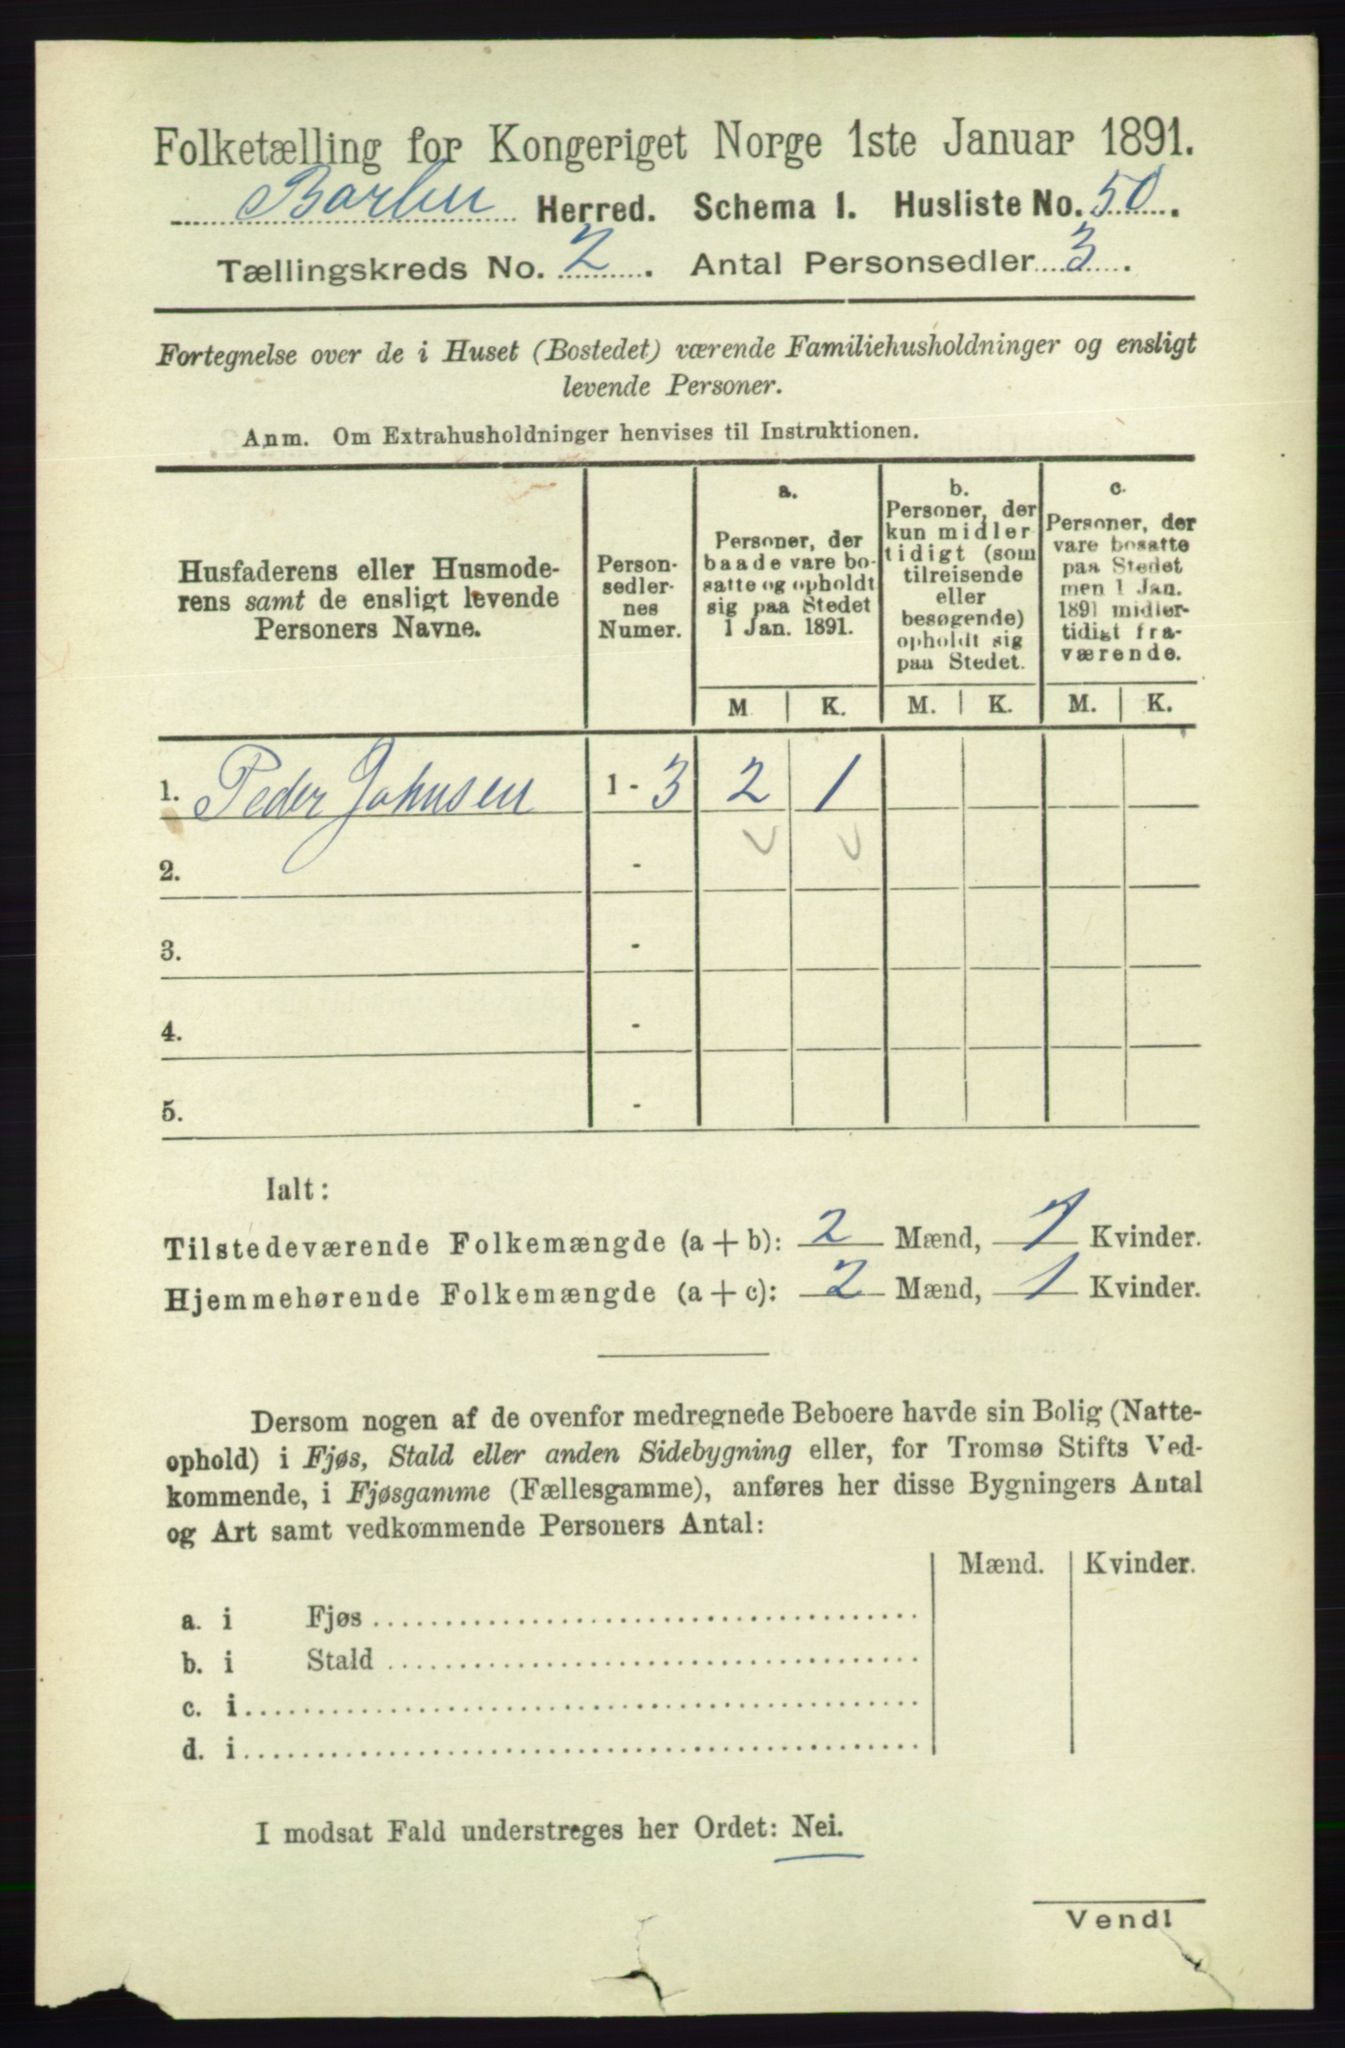 Folketælling for Kongeriget Norge 1ste Januar 1891.
Barbu Herred. Schema 1. Husliste No. 50.
Tællingskreds No. 2. Antal Personsedler 3.
Fortegnelse over de i Huset (Bostedet) værende Familiehusholdninger og ensligt
levende Personer.
Anm. Om Extrahusholdninger henvises til Instruktionen.
Husfaderens eller Husmode-
rens samt de ensligt levende
Personers Navne.
Person-
sedler-
nes
Numer.
a.
Personer, der
baade vare bo-
satte og opholdt
sig paa Stedet
1 Jan. 1891.
b.
Personer, der
kun midler
tidigt (som
tilreisende
eller
besøgende)
opholdt sig
paa Stedet.
c.
Personer, der
vare bosatte
paa Stedet
men 1 Jan.
1891 midler-
tidigt fra-
værende.
M K. M. K. M. K.
1. Peder Johnsen 1 - 3 2 1
2. -
3. -
4. -
5. -
Ialt:
Tilstedeværende Folkemængde (a + b): 2 Mænd, 1 Kvinder.
Hjemmehørende Folkemængde (a + c): 2 Mænd, 1 Kvinder.
Dersom nogen af de ovenfor medregnede Beboere havde sin Bolig (Natte-
ophold) i Fjøs, Stald eller anden Sidebygning eller, for Tromsø Stifts Ved-
kommende, i Fjøsgamme (Fællesgamme), anføres her disse Bygningers Antal
og Art samt vedkommende Personers Antal:
Mænd. Kvinder.
a. i Fjøs
b. i Stald
c. i
d. i
I modsat Fald understreges her Ordet: Nei.
Vendl